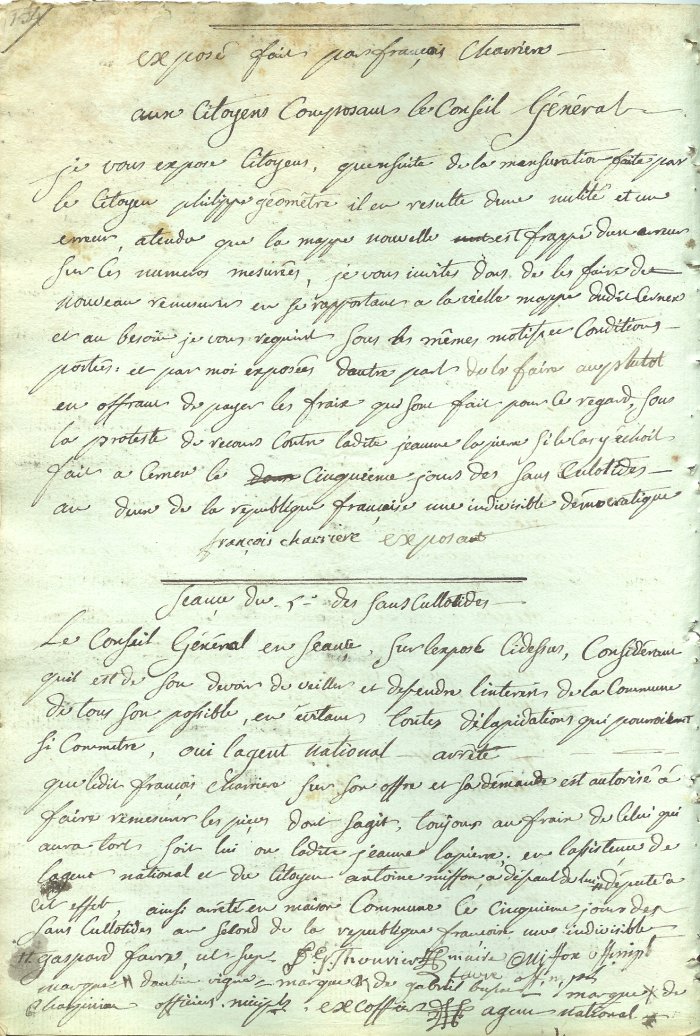 134
exposé fait par françois Charriere
aux Citoyens Composant le Conseil Général
je vous expose Citoyens, quensuite de la mensuration faite par
le Citoyen philippe géomètre il en resulte dune nulité et un
erreur, atendu que la mappe nouvelle est frappé dun erreur
sur les numeros mesurées, je vous invites donc de les faire de
nouveau remesurer en se rapportant a la vielle mappe dudit Cernex
et au besoin je vous requiert sous les mêmes motifs et Conditions
portées et par moi exposées dautre part de le faire au plutot
en offrant de payer les fraix qui sont fait pour ce regard, sous
la proteste de recours Contre ladite jeanne lapierre si le cas y échoit
fait a Cernex le Cinquième jour des sans Culotides
an deux de la république françoise une indivisible démocratique
françois charriere exposant
Seance du 5e des sans Cullotides
Le Conseil Général en seance, sur lexposé cidessus, Considérant
quil est de son devoir de veiller et defendre linterets de la Commune
de tous son possible, en évitant toutes délapidations qui pouroient
si Commetre, oui lagent national arrête
que ledit françois Charriere sur son offre et sa démande est autorisé à
faire remesurer les pieces dont sagit, toujours au frain de Celui qui
aura tort soit lui ou ladite jeanne lapierre, en lassistence de
lagent national et du Citoyen antoine misson, a défaut de lui député à
cit effet, ainsi arrêté en maison Commune Ce Cinquieme jour des
sans Cullotides an second de la republique francoise une indivisible
gaspard favre, maire
marque de vigne marque de gabriel marque de
officier municipl excoffier agent national